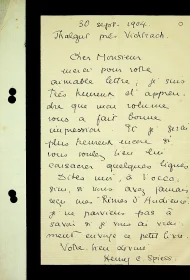 30 sept. 1904.
Thalgut près Wichtrach.
Cher Monsieur
merci pour votre
aimable lettre; je suis
très heureux d'appren-
dre que mon volume
vous a fait bonne
impression. Et je serai
plus heureux encore si
vous voulez bien lui
consacrer quelques lignes
Dites moi, à l'occa-
sion, si vous avez jamais
reçu mes "Rimes d'Audience".
je ne parviens pas à
savoir si je vous ai vrai-
ment envoyé ce petit livre.
Votre bien dévoué
Henry E. Spiess.